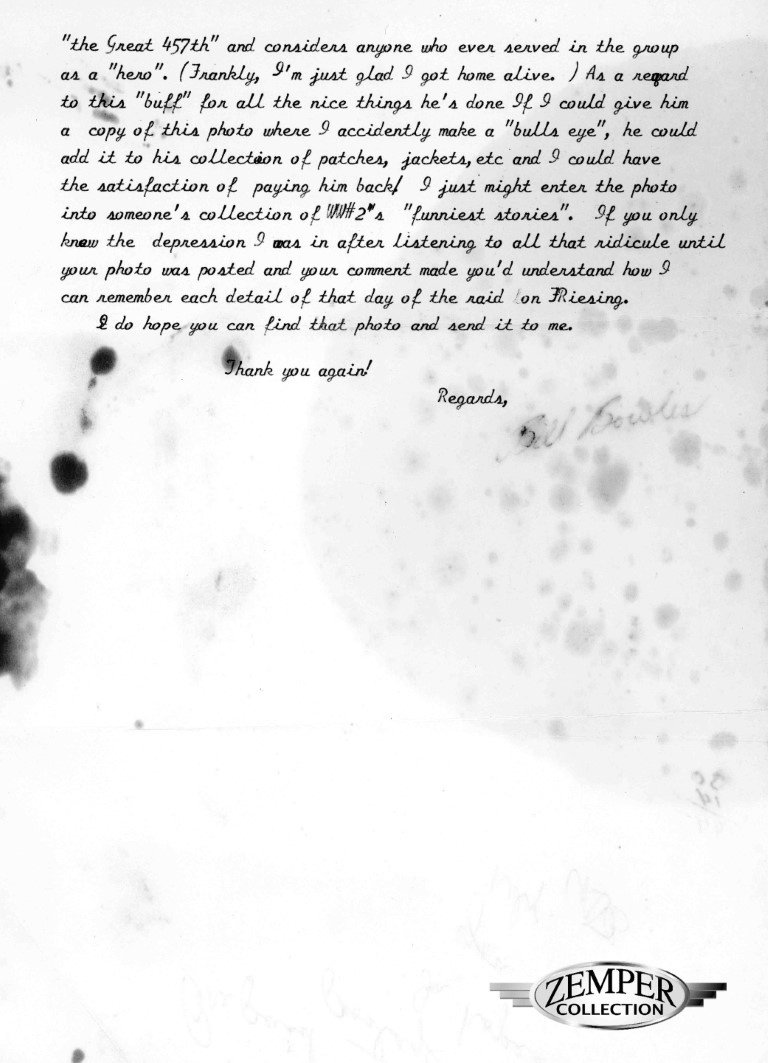 "the Great 457th" and considers anyone who ever served in the group
as a "hero". (Frankly, I'm just glad I got home alive. ) As a regard
to this "buff" for all the nice things he's done If I could give him
a copy of this photo where I accidently make a "bulls eye", he could
add it to his collection of patches, jackets, etc and I could have
the satisfaction of paying him back! I just might enter the photo
into someone's collection of WW#2"s "funniest stories". If you only
knew the depression I was in after listening to all that ridicule until
your photo was posted and your comment made you'd understand how I
can remember each detail of that day of the raid on FRiesing.
I do hope you can find that photo and send it to me.
Thank you again!
Regards,
Bill Bowles
ZEMPER
COLLECTION